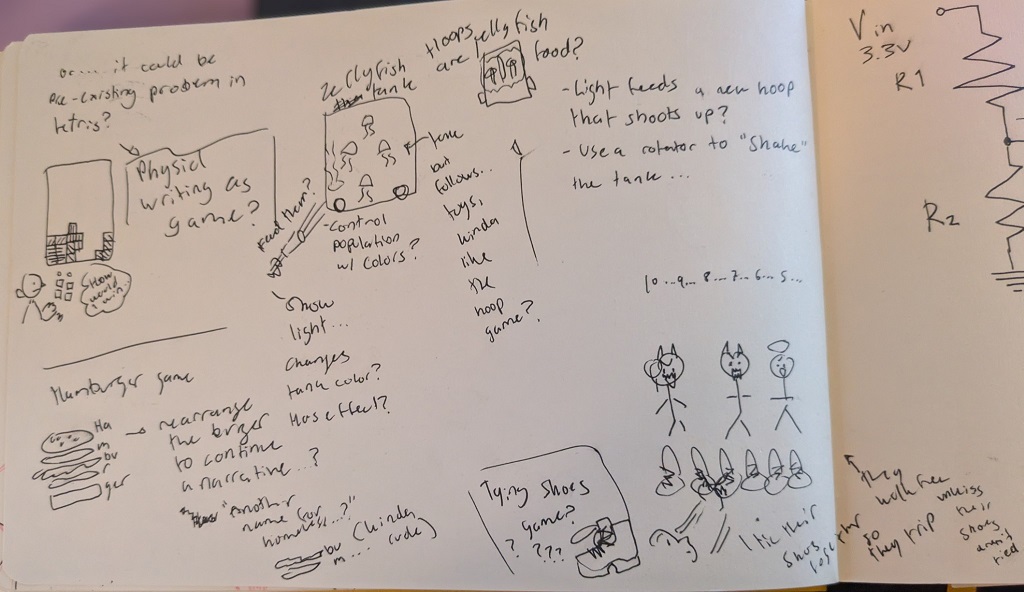 or.... it could be
pre-existing problem in
tetris?
Physical
writing as
game?
(How
would I
win...
Jellyfish
tank
Feed them?
- Control
population
w/ colors?
Show
light...
changes
tank color?
Has effect?
Hoops
are jellyfish
food?
but
follows...
toys,
kinda
like
the
hoop
game?
- Light feeds a new hoop
that shoots up?
- Use a rotator to "Shake"
the tank...
Hamburger game
Ha
m
bu
r
ger
→ rearrange
the burger
to continue
a narrative...?
"Another
name for
homeless...?"
bu
m.....
(kinda
rude)
Tying shoes
game?
? ???
10...9...8...7...6...5...
I tie their
shoes together
so
they
walk free
they trip unless
their
shoes
aren't
tied
Vin
3.3V
R1
R2